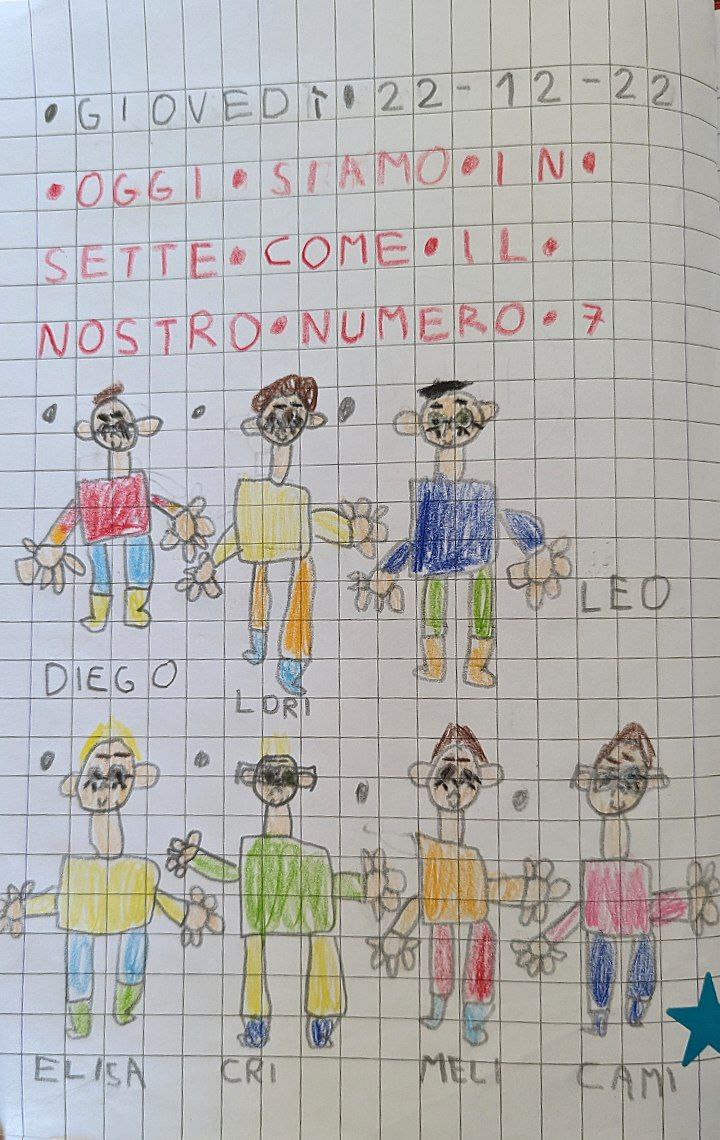 •GIOVEDÌ•22-12-22
•OGGI•SIAMO•IN•
SETTE•COME•IL•
NOSTRO•NUMERO•7
DIEGO
LORI
LEO
ELISA
CRI
MELI
CAMI